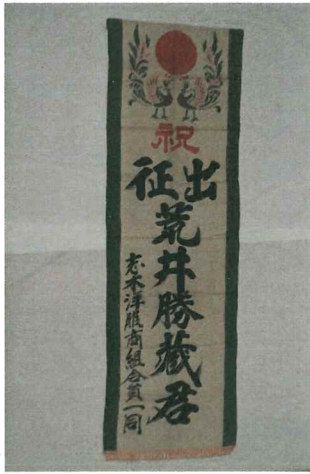 祝
出征
荒井勝蔵君
志木洋服商組合員一同